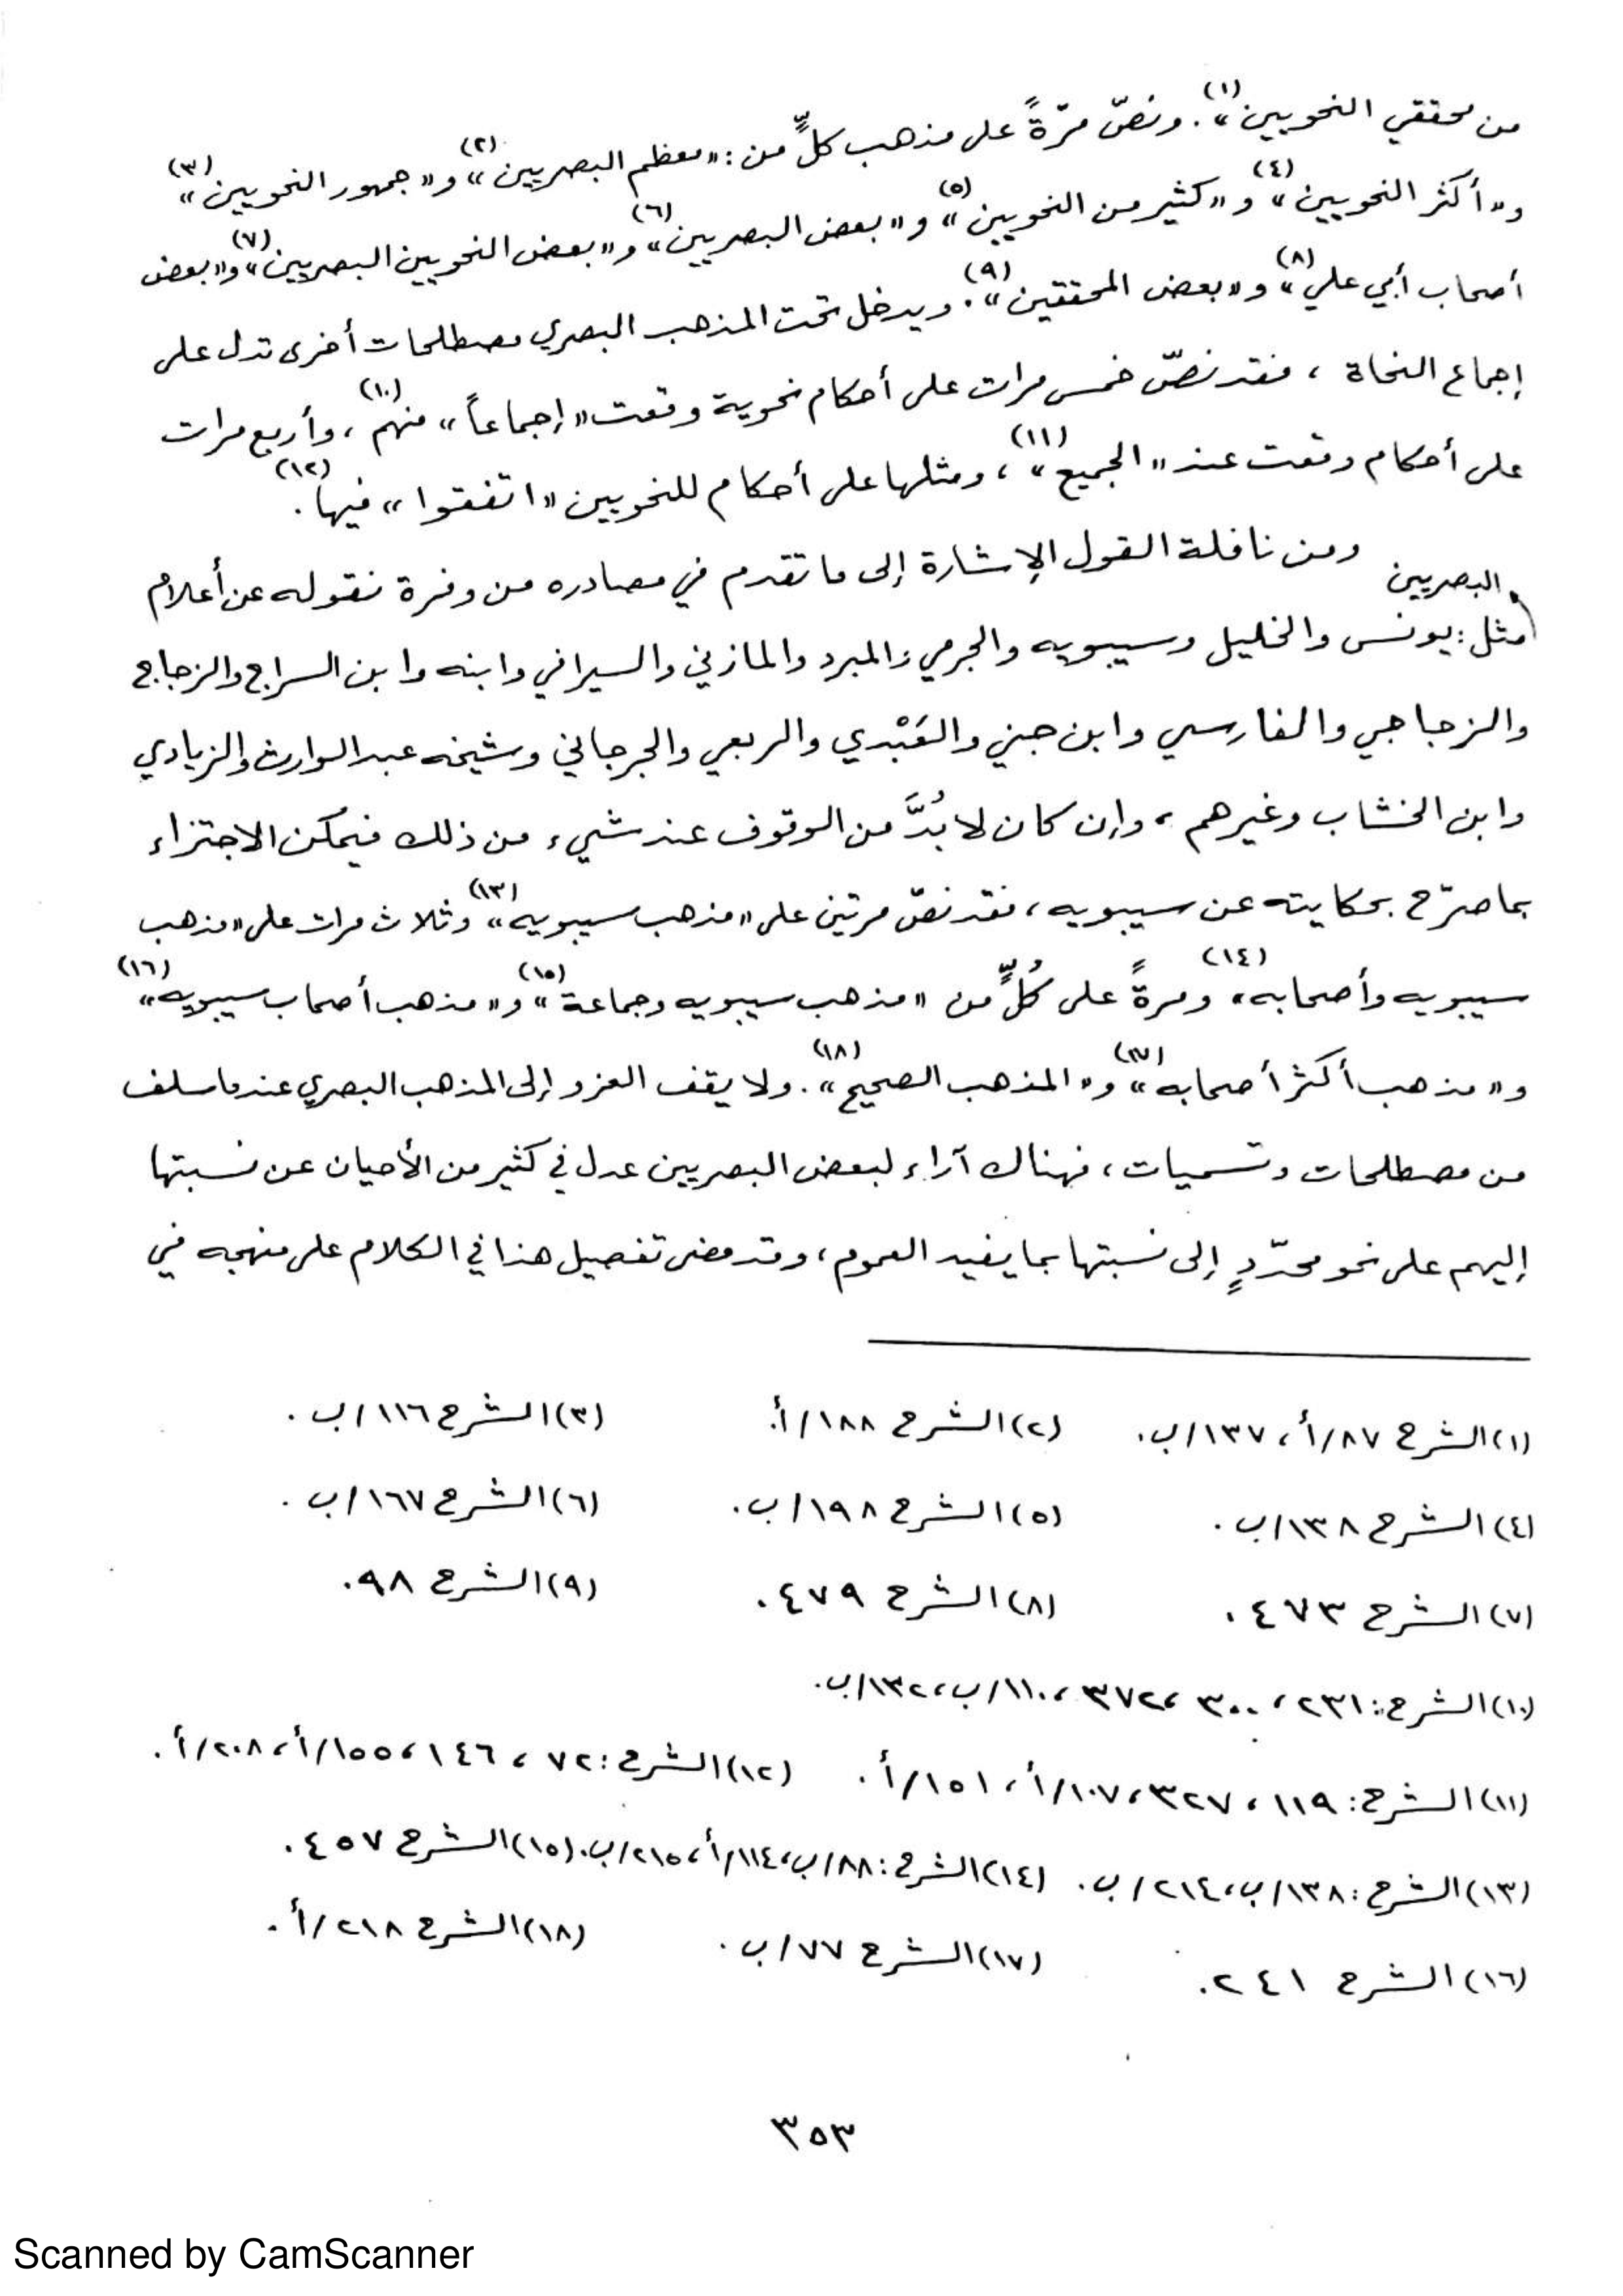 من محققي النحويين»(١). ونصّ مرّةً على مذهب كلٍّ من: «معظم البصريين»(٢) و«جمهور النحويين»(٣)
و«أكثر النحويين»(٤) و«كثير من النحويين»(٥) و«بعض البصريين»(٦) و«بعض النحويين البصريين»(٧) و«بعض
أصحاب أبي علي»(٨) و«بعض المحققين»(٩). ويدخل تحت المذهب البصري مصطلحات أخرى تدل على
إجماع النحاة ، فقد نصّ خمس مرات على أحكام نحوية وقعت «إجماعاً» منهم(١٠)، وأربع مرات
على أحكام وقعت عند «الجميع»(١١)، ومثلها على أحكام للنحويين «اتفقوا» فيها(١٢).
ومن نافلة القول الإشارة إلى ما تقدم في مصادره من وفرة نقوله عن أعلام
البصريين
مثل: يونس والخليل وسيبويه والجرمي والمبرد والمازني والسيرافي وابنه وابن السراج والزجاج
والزجاجي والفارسي وابن جني والعَبْدي والربعي والجرجاني وشيخه عبد الوارث والزيادي
وابن الخشاب وغيرهم ، وإن كان لا بُدَّ من الوقوف عند شيء من ذلك فيمكن الاجتزاء
بما صرّح بحكايته عن سيبويه، فقد نصّ مرتين على «مذهب سيبويه»(١٣) وثلاث مرات على «مذهب
سيبويه وأصحابه»(١٤) ومرةً على كُلٍّ من «مذهب سيبويه وجماعة»(١٥) و«مذهب أصحاب سيبويه»(١٦)
و«مذهب أكثر أصحابه»(١٧) و«المذهب الصحيح»(١٨). ولا يقف العزو إلى المذهب البصري عند ما سلف
من مصطلحات وتسميات، فهناك آراء لبعض البصريين عدل في كثير من الأحيان عن نسبتها
إليهم على نحو محدّدٍ إلى نسبتها بما يفيد العموم، وقد مضى تفصيل هذا في الكلام على منهجه في
(١) الشرح ٨٧/أ، ١٣٧/ب. (٢) الشرح ١٨٨/أ. (٣) الشرح ١١٦/ب.
(٤) الشرح ١٣٨/ب. (٥) الشرح ١٩٨/ب. (٦) الشرح ١٦٧/ب.
(٧) الشرح ٤٧٣. (٨) الشرح ٤٧٩. (٩) الشرح ٩٨.
(١٠) الشرح: ٢٣١، ٣٠٠، ٣٧٢، ١١٠/ب، ١٣٢/ب.
(١١) الشرح: ١١٩، ٣٢٧، ١٠٧/أ، ١٥١/أ. (١٢) الشرح: ٧٢، ١٤٦، ١٥٥/أ، ٢٠٨/أ.
(١٣) الشرح: ١٣٨/ب، ٢١٤/ب. (١٤) الشرح: ٨٨/ب، ١١٤/أ، ٢١٥/ب. (١٥) الشرح ٤٥٧.
(١٦) الشرح ٢٤١. (١٧) الشرح ٧٧/ب. (١٨) الشرح ٢١٨/أ.
٣٥٣
Scanned by CamScanner